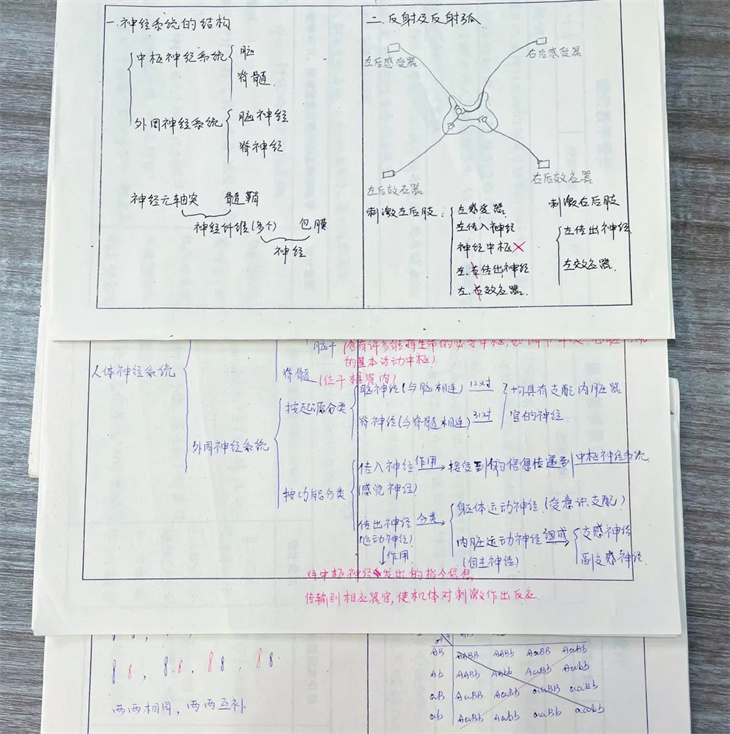 一.神经系统的结构
中枢神经系统
脑
脊髓
外周神经系统
脑神经
脊神经
神经元轴突 髓鞘
神经纤维(多个) 包膜
神经
二.反射及反射弧
左后感受器 右后感受器
左后效应器 右后效应器
刺激左后肢:
左感受器
左传入神经
神经中枢
左.右传出神经
左.右效应器
刺激右后肢
左传出神经
左效应器
人体神经系统
脑干
的基本活动中枢)
脊髓(位于椎管内)
外周神经系统
按起源分类
脑神经(与脑相连) 12对
脊神经(与脊髓相连) 31对
均具有支配内脏器
官的神经
按功能分类
传入神经 作用 接收到的信息传递到中枢神经系统
(感觉神经)
传出神经 分类
(运动神经)
作用
躯体运动神经(受意识支配)
内脏运动神经 组成
(自主神经)
交感神经
副交感神经
将中枢神经发出的指令信息
传输到相应器官,使机体对刺激作出反应
两两相同,两两互补
AB AABB AABb AaBB AaBb
Ab AABb AAbb AaBb Aabb
aB AaBB AaBb aaBB aaBb
ab AaBb Aabb aaBb aabb